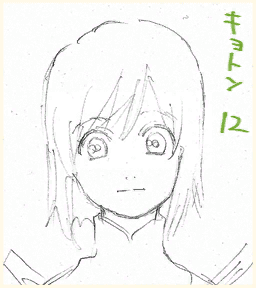 キョトン
12